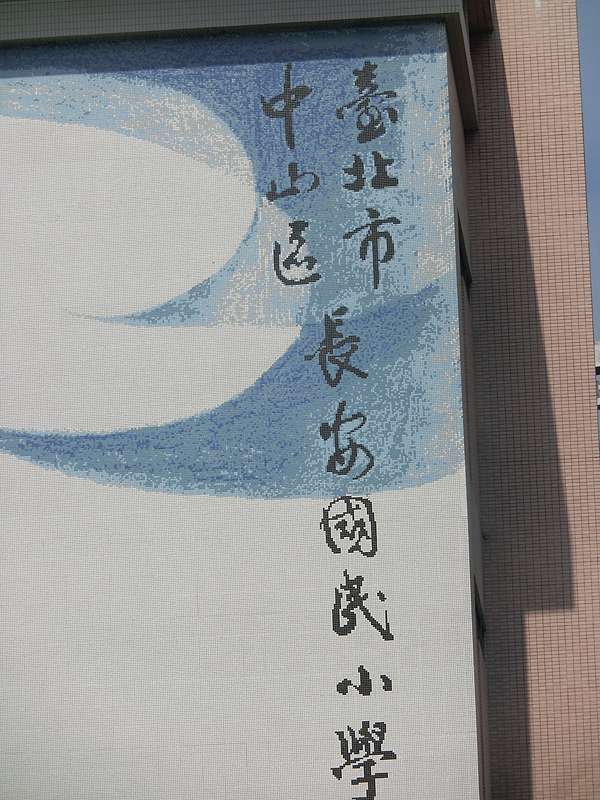 臺北市
中山區
長安國民小學